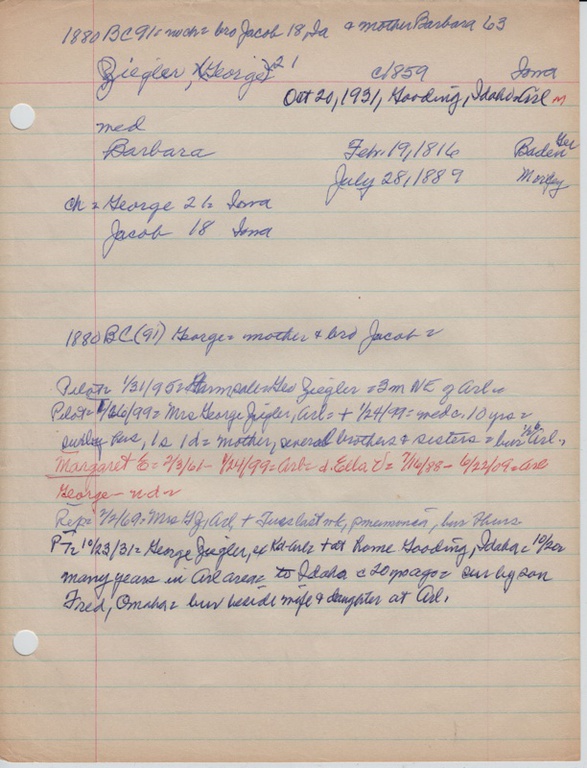 1880 BC 91 = no ch = bro Jacob 18, Ia & mother Barbara 63
Ziegler, (George) 21 c1859 Iowa
Oct 20, 1931, Gooding, Idaho = Arl m
med
Barbara Feb. 19, 1816 Baden Ger
July 28, 1889
ch = George 26 Iowa
Jacob 18 Iowa
1880 BC (91) George = mother & bro Jacob =
Pilot = 1/31/95 = Farm sale = Geo Ziegler = 3 m NE of Arl =
Pilot = 1/26/99 = Mrs George Zeigler, Arl = + 1/24/99 = med c. 10 yrs =
surby hus, 1 s 1 d = mother, several brothers & sisters = bur Arl =
Margaret E = 2/3/61 - 1/24/99 = Arl = d. Ella V = 7/16/88 - 6/22/09 = Arl
George - n.d. =
Rep = 2/2/69 = Mrs G Z, Arl + Tues last wk, pneumonia, bur Thurs
P-T = 10/23/31 = George Zeigler, ex Rd-Arl = + at Home Gooding, Idaho = 10/20 =
many years in Arl area = to Idaho c 20 yr ago = sur by son
Fred, Omaha = bur beside wife & daughter at Arl.